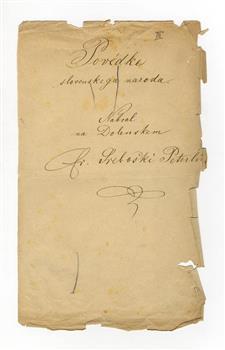 III
Povédke
slovenskega naroda
Nabral
na Dolenskem
Fr. Sreboški Peterlin